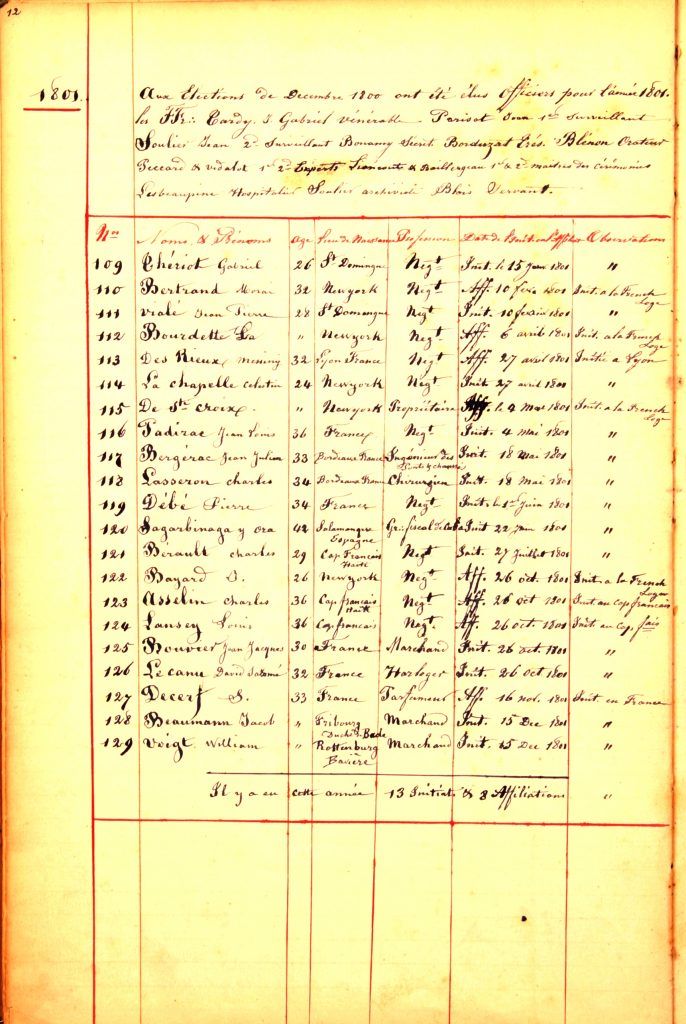 12
1801.
Aux Elections de Decembre 1800 ont été élus Officiers pour l'année 1801.
les FF∴ Tardy, J Gabriel Vénérable Parisot Jean 1er Surveillant
Soulier Jean 2d Surveillant Bonamy Secret Borduzat Trés. Blénon Orateur
Peccard & Vidalot 1er 2d Experts & Baillergeau 1er & 2d maitres des cérémonies
Lesbeaupine Hospitalier Soulier archiviste Blois Servant.
Nos Noms & Prénoms Age Lieu de Naissance Profession Date de l'Init ou l'Affilion Observations
109 Chériot Gabriel 26 St Domingue Negt Init. le 15 Janv 1801 "
110 Bertrand 32 Newyork Negt Aff. 10 fevr 1801 Init. a la French Loge
111 Vialé Jean Pierre 28 St Domingue Negt Init. 10 fevrier 1801 "
112 Bourdette La " Newyork Negt Aff. 6 avril 1801 Init. a la French Loge
113 Des Rieux 32 Lyon France Negt Aff. 27 avril 1801 Initié a Lyon
114 La chapelle Celestin 24 Newyork Negt Init 27 avril 1801 "
115 De Ste croix. " Newyork Propriétaire Aff. le 4 Mai 1801 Init. a la French Loge
116 Padirac Jean Louis 36 France Negt Init. 4 mai 1801 "
117 Bergérac Jean Julien 33 Bordeaux France Ingénieur des Ponts & chaussées Init. 18 Mai 1801 "
118 Lasseron charles 34 Bordeaux France Chirurgien Init. 18 Mai 1801 "
119 Débé Pierre 34 France Negt Init. le 1er Juin 1801 "
120 Sagarbinaga y Ora 42 Salamanque Espagne Gr. fiscal de Cuba Init 22 Juin 1801 "
121 Bérault charles 29 Cap Francais Haiti Negt Init. 27 Juillet 1801 "
122 Bayard D. 26 Newyork Negt Aff. 26 oct. 1801 Init. a la French Loge
123 Asselin charles 36 Cap francais Haiti Negt Aff. 26 oct 1801 Init au Cap francais
124 Lansey Louis 36 Cap francais Negt. Aff. 26 oct. 1801 Init au Cap. fais
125 Bouvier Jean Jacques 30 France Marchand Init. 26 oct 1801 "
126 Lecanu David Salomé 32 France Horloger Init. 26 oct 1801 "
127 Decerf S. 33 France Parfumeur Aff. 16 nov. 1801 Init en France
128 Beaumann Jacob " Fribourg Duché Bade Marchand Init. 15 Dec 1801 "
129 Voigt William " Rottenburg Bavière Marchand Init. 15 Dec 1801 "
Il y a eu cette année 13 Initiats & 8 Affiliations "